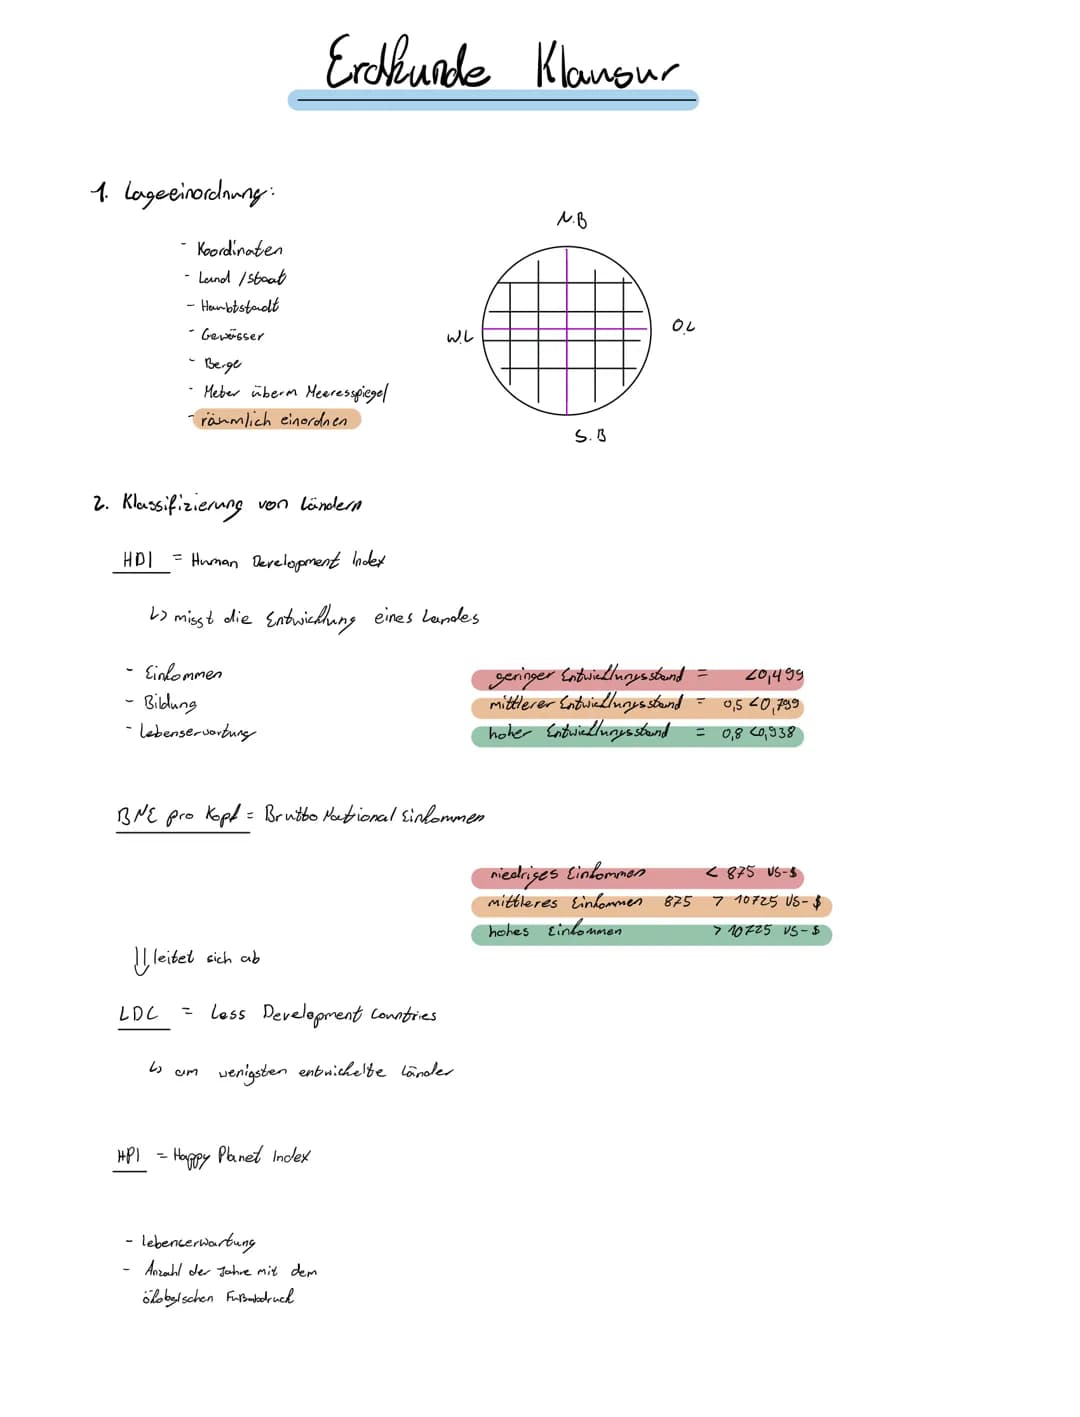 Erdkunde Klausur
1. Lageeinordnung:
- Koordinaten
- Land / Staat
- Hauptstadt
- Gewässer
- Berge
- Meter überm Meeresspiegel
- räumlich einordnen
N.B
W.L
O.L
S.B
2. Klassifizierung von Ländern
HDI = Human Development Index
↳ misst die Entwicklung eines Landes
- Einkommen
- Bildung
- Lebenserwartung
geringer Entwicklungsstand = <0,499
mittlerer Entwicklungsstand = 0,5 <0,799
hoher Entwicklungsstand = 0,8 <0,938
BNE pro Kopf = Brutto National Einkommen
niedriges Einkommen < 875 US-$
mittleres Einkommen 875 > 10725 US-$
hohes Einkommen > 10725 US-$
⇓ leitet sich ab
LDC = Less Development Countries
↳ am wenigsten entwickelte Länder
HPI = Happy Planet Index
- Lebenserwartung
- Anzahl der Jahre mit dem
ökologischen Fußabdruck